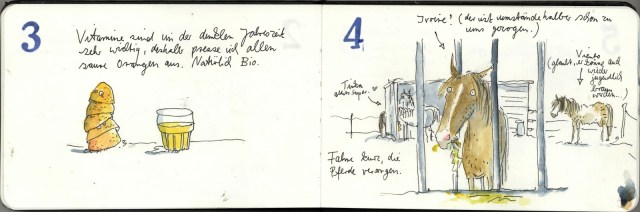 3
Vitamine sind in der dunklen Jahreszeit
sehr wichtig, deshalb presse ich allen
saure Orangen aus. Natürlich Bio.
4
Ivoire! (der ist umständehalber schon zu
uns gezogen.)
Tinka
alles super.
Vento
(glaubt, er könne auf
wieder
jugendlich
werden...)
Fahre kurz, die
Pferde versorgen.